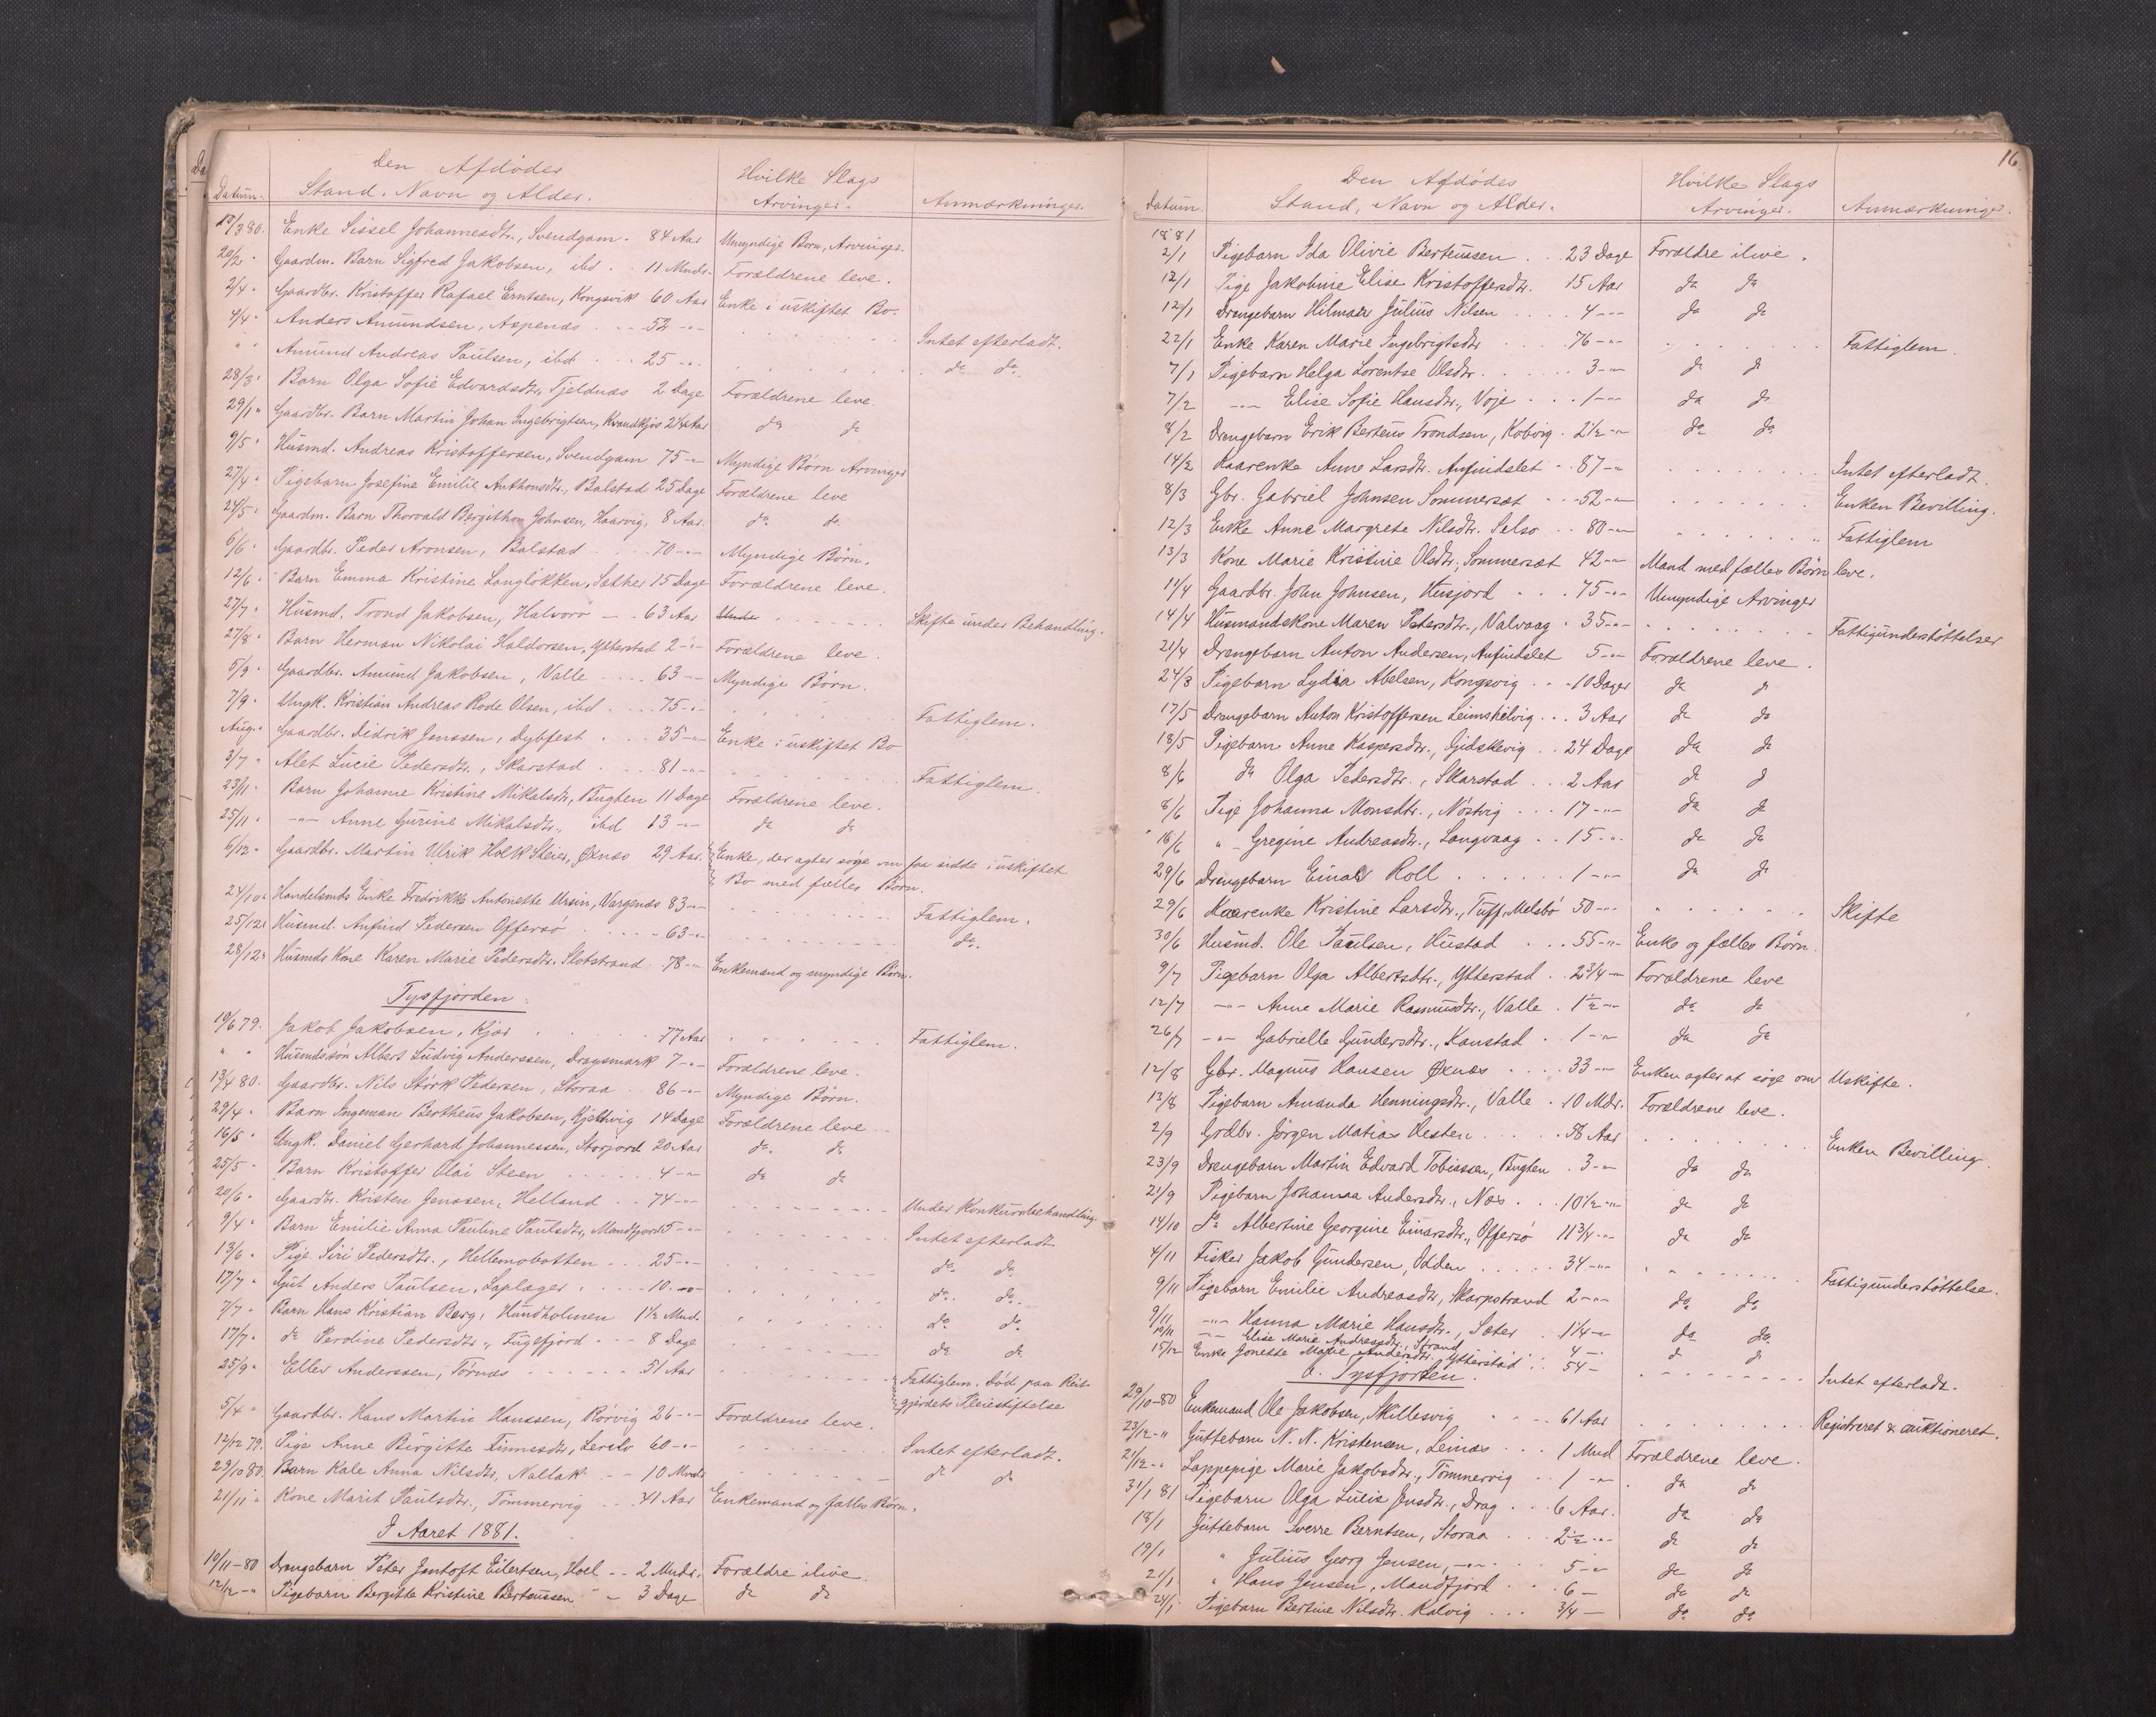 Den Afdødes
Stand. Navn og Alder.
Datum.
Hvilke Slags
Arvinger.
Anmærkninger.
13/3 80. Enke Sissel Johannesdtr., Svendgam. 84 Aar Umyndige Born, Arvinger.
20/2 " Gaardm. Barn Sigfred Jakobsen, ibd. 11 Mndr. Forældrene leve.
2/4 " Gaardbr. Kristoffer Rafael Erntsen, Kongsvik 60 Aar Enke i uskiftet Bo.
4/4 " Anders Amundsen, Aspenæs 52 -"- Intet efterladt.
" " Amund Andreas Paulsen, ibd 25 -"- do do
28/3 " Barn Olga Sofie Edvardsdtr, Tjeldnæs 2 Dage Forældrene leve.
29/1 " Gaardbr. Barn Martin Johan Ingebrigtsen, Kvandkjos 2¼ Aar do do
9/5 " Husmd. Andreas Kristoffersen, Svendgam 75 -"- Myndige Børn Arvinger
27/4 " Pigebarn Josefine Emilie Anthonsdtr., Balstad 25 Dage Forældrene leve
24/5 " Gaardm. Barn Thorvald Bergithon Johnsen, Haarvig, 8 Aar. do do
6/6 " Gaardbr. Peder Aronsen, Balstad 70 -"- Myndige Børn.
12/6 " Barn Emma Kristine Langløkken, Sæther 15 Dage Forældrene leve.
27/7 " Husmd. Trond Jakobsen, Halvorø 63 Aar Skifte under Behandling.
27/8 " Barn Herman Nikolai Haldorsen, Ytterstad 2 -"- Forældrene leve.
5/9 " Gaardbr. Amund Jakobsen, Valle 63 -"- Myndige Børn.
7/9 " Ungk. Kristian Andreas Rode Olsen, ibd 75 -"- Fattiglem.
Aug. " Gaardbr. Didrik Jenssen, Dybfest 35 -"- Enke i uskiftet Bo
3/7 " Alet Lucie Pedersdtr., Skarstad 81 -"- Fattiglem.
23/11 " Barn Johanne Kristine Mikalsdtr, Bugten 11 Dage Forældrene leve.
25/11 " -"- Anne Gurine Mikalsdtr., ibd 13 -"- do do
6/12 " Gaardbr. Martin Ulrik Holk Steier, Øxnæs 29 Aar. Enke, der agter søge om faa sidde i uskiftet
Bo med fælles Børn.
24/10 " Handelsmds Enke Fredrikke Antonette Ursin, Vargnæs 83 -"- Fattiglem.
25/12 " Husmd. Anfind Pedersen Offersø 63 -"- do.
28/12 " Husmds Kone Karen Marie Pedersdtr. Slotstrand 78 -"- Enkemand og myndige Børn.
Tysfjorden.
19/6 79. Jakob Jakobsen, Kjær 77 Aar Fattiglem.
" " Husmdssøn Albert Ludvig Anderssen, Dragsmark 7 -"- Forældrene leve.
13/4 80. Gaardbr. Nils Størk Pedersen, Storaa 86 -"- Myndige Børn.
29/4 " Barn Ingeman Bertheus Jakobsen, Kjettvig 14 Dage Forældrene leve
16/5 " Ungk. Daniel Gerhard Johannessen, Storjord 20 Aar do. do
25/5 " Barn Kristoffer Olai Steen 4 -"- do do
20/6 " Gaardbr. Kristen Jenssen, Helland 74 -"- Under Konkursbehandling.
9/4 " Barn Emilie Anna Pauline Paulsdtr, Mandfjord 5 -"- Intet efterladt
13/6 " Pige Siri Pedersdtr., Hellemobotten 25 -"- do. do.
17/7 " Gut Anders Paulsen, Laplager 10 -"- do. do.
7/7 " Barn Hans Kristian Berg, Hundholmen 1½ Mnd. do do.
17/7 " do Peroline Pedersdtr., Fuglfjord 8 Dage do do.
25/9 " Eller Anderssen, Tørnæs 51 Aar Fattiglem. Død paa Reit-
gjerdets Pleiestiftelse
5/4 " Gaardbr. Hans Martin Hanssen, Rørvig 26 -"- Forældrene leve.
12/12 79. Pige Anne Birgitte Finnesdtr, Lerelv 60 -"- Intet efterladt.
29/10 80. Barn Kale Anna Nilsdtr, Nallak 10 Mndr do do
21/11 " Kone Marit Paulsdtr., Tømmervig 41 Aar Enkemand og fælles Børn.
I Aaret 1881.
10/11-80 Drengebarn Peter Jentoft Eilertsen, Hoel 2 Mndr. Forældre ilive.
12/12 -" Pigebarn Bergitte Kristine Berteussen 3 Dage do do
16.
Den Afdødes
Stand, Navn og Alder.
Datum.
Hvilke Slags
Arvinger.
Anmærkninger.
1881
2/1 Pigebarn Ida Olivie Berteussen 23 Dage Forældre ilive.
12/1 Pige Jakobine Elise Kristoffersdtr. 15 Aar do do
12/1 Drengebarn Hilmar Julius Nilsen 4 -"- do do
22/1 Enke Karen Marie Ingebrigtsdtr 76 -"- Fattiglem.
7/1 Pigebarn Helga Lorentse Olsdtr. 3 -"- do do
7/2 -"- Elise Sofie Hansdtr., Voje 1 -"- do do
8/2 Drengebarn Erik Berteus Trondsen, Kobvig 2½ -"- do do
14/2 Kaarenke Anne Larsdtr. Anfindslet 87 -"- Intet efterladt.
8/3 Gbr. Gabriel Johnsen Sommersæt 52 -"- Enken Bevilling.
12/3 Enke Anne Margrete Nilsdtr. Selsø 80 -"- Fattiglem
13/3 Kone Marie Kristine Olsdtr, Sommersæt 42 -"- Mand med fælles Børn leve.
11/4 Gaardbr. John Johnsen, Husjord 75 -"- Umyndige Arvinger
14/4 Husmandskone Maren Petersdtr., Valvaag 35 -"- Fattigunderstøttelser
21/4 Drengebarn Anton Andersen, Anfindslet 5 -"- Forældrene leve.
24/3 Pigebarn Lydia Abelsen, Kongsvig 10 Dage do do
17/5 Drengebarn Anton Kristoffersen Leimskelvig 3 Aar do do
18/5 Pigebarn Anne Kaspersdtr., Gidskevig 24 Dage do do
8/6 do Olga Pedersdtr., Skarstad 2 Aar do do
8/6 Pige Johanna Monsdtr., Nøstvig 17 -"- do do
16/6 " Gregine Andreasdtr., Langvaag 15 -"- do do
29/6 Drengebarn Einar Roll 1 -"- do do
29/6 Kaarenke Kristine Larsdtr., Tuff, Melsbø 50 -"- Skifte
30/6 Husmd. Ole Paulsen, Hustad 55 -"- Enke og fælles Børn.
9/7 Pigebarn Olga Albertsdtr., Ytterstad 2¾ -"- Forældrene leve
12/7 -"- Anne Marie Rasmusdtr., Valle 1½ -"- do do
26/7 -"- Gabrielle Gundersdtr., Kanstad 1 -"- do do
12/8 Gbr. Magnus Hansen Øxnæs 33 -"- Enken agter at søge om Uskifte.
13/8 Pigebarn Amanda Henningsdtr., Valle 10 Mdr. Forældrene leve.
2/9 Grdbr. Jørgen Matias Hesten 58 Aar Enken Bevilling.
23/9 Drengebarn Martin Edvard Tobiassen, Bugten 3 -"- do do
21/9 Pigebarn Johanna Andersdtr., Næs 10½ -"- do do
14/10 Do Albertine Georgine Einarsdtr., Offersø 11¾ -"- do do
4/11 Fisker Jakob Gundersen, Odden 34 -"- Fattigunderstøttelse.
9/11 Pigebarn Emilie Andreasdtr, Skarpstrand 2 -"- do do
9/11 -"- Hanna Marie Hansdtr., Sæter 1¼ -"- do do.
19/11 -"- Elise Marie Andreasdtr., Strand 4 - do do
15/12 Enke Jonette Marie Andersdtr. Ytterstad 54 - Intet efterladt.
b. Tysfjorden.
29/10-80 Enkemand Ole Jakobsen, Skillesvig 61 Aar Registreret & auktioneret.
23/12 -" Guttebarn N. N. Kristensen, Leinæs 1 Mnd Forældrene leve.
21/12 -" Lappepige Marie Jakobsdtr., Tømmervig 1 -"- do do
31/1 81 Pigebarn Olga Lucie Jensdtr., Drag 6 Aar. do do
18/1 Guttebarn Sverre Berntsen, Storaa 2½ -"- do do
19/1 " Julius Georg Jensen, -"- 5 -"- do do
21/1 " Hans Jensen, Mandfjord 6 - do do
24/1 Pigebarn Bertine Nilsdtr. Kalvig 3/4 - do do